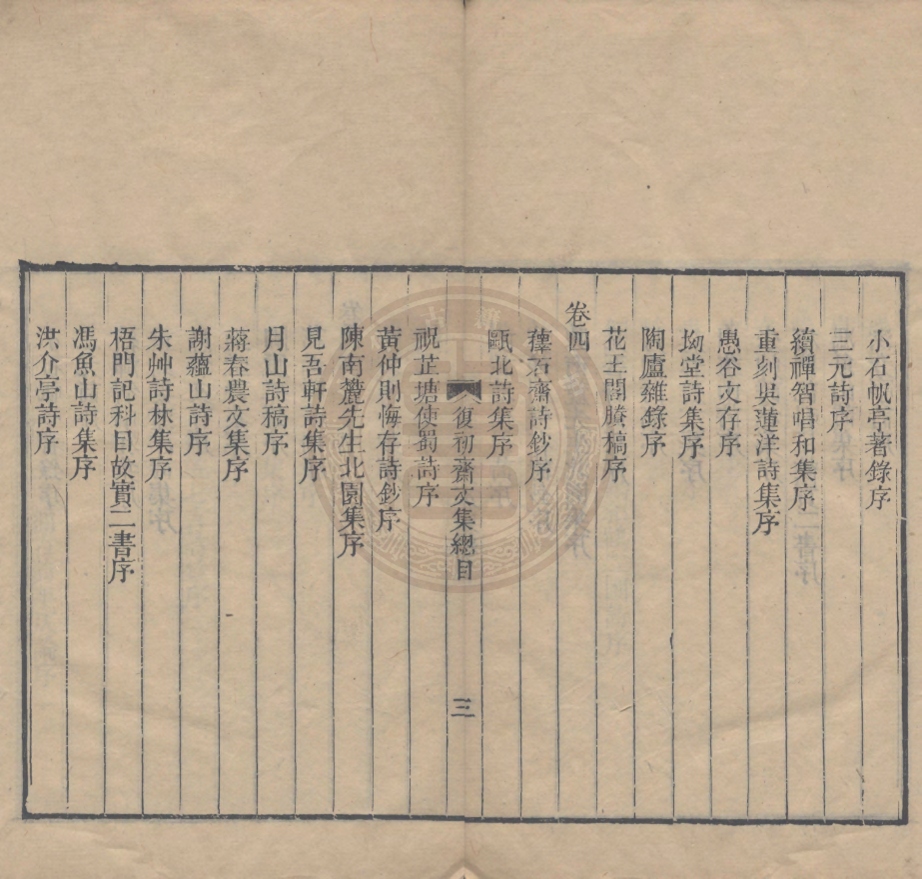 小石帆亭著錄序
三元詩序
續禪智唱和集序
重刻吳蓮洋詩集序
愚谷文存序
坳堂詩集序
陶廬雜錄序
花王閣賸稿序
卷四
蘀石齋詩鈔序
甌北詩集序
復初齋文集總目
三
祝芷塘使蜀詩序
黃仲則悔存詩鈔序
陳南麓先生北園集序
見吾軒詩集序
月山詩稿序
蔣春農文集序
謝蘊山詩序
朱艸詩林集序
梧門記科目故實二書序
馮魚山詩集序
洪介亭詩序